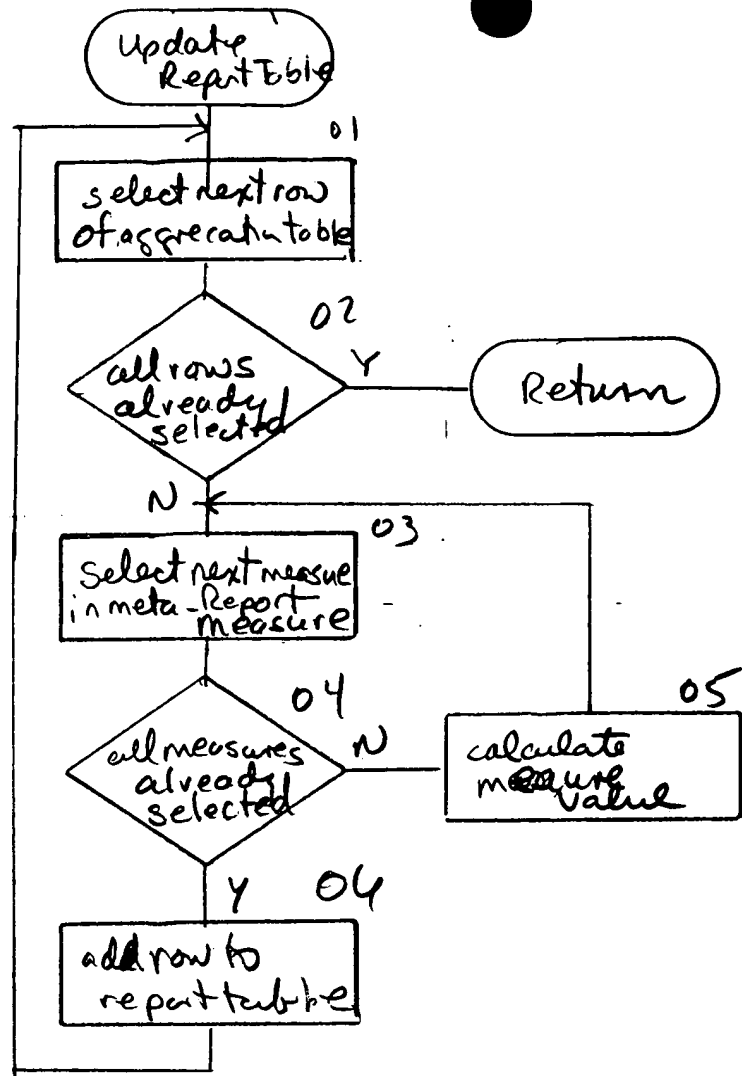 Update
Report Table
01
select next row
of aggregation table
02
all rows
already
selected
Y
Return
N
03
Select next measure
in meta-Report
measure
04
all measures
already
selected
N
05
calculate
measure
value
Y
06
add row to
report table